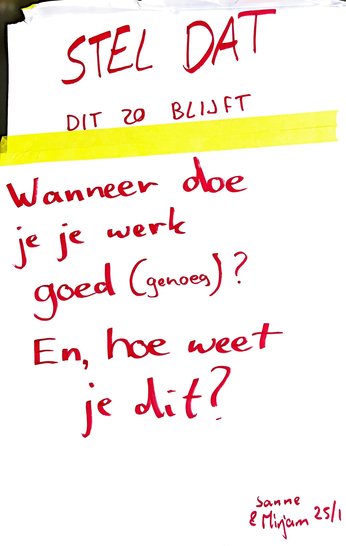 STEL DAT
DIT ZO BLIJFT
Wanneer doe
je je werk
goed (genoeg)?
En, hoe weet
je dit?
Sanne
& Mirjam 25/1